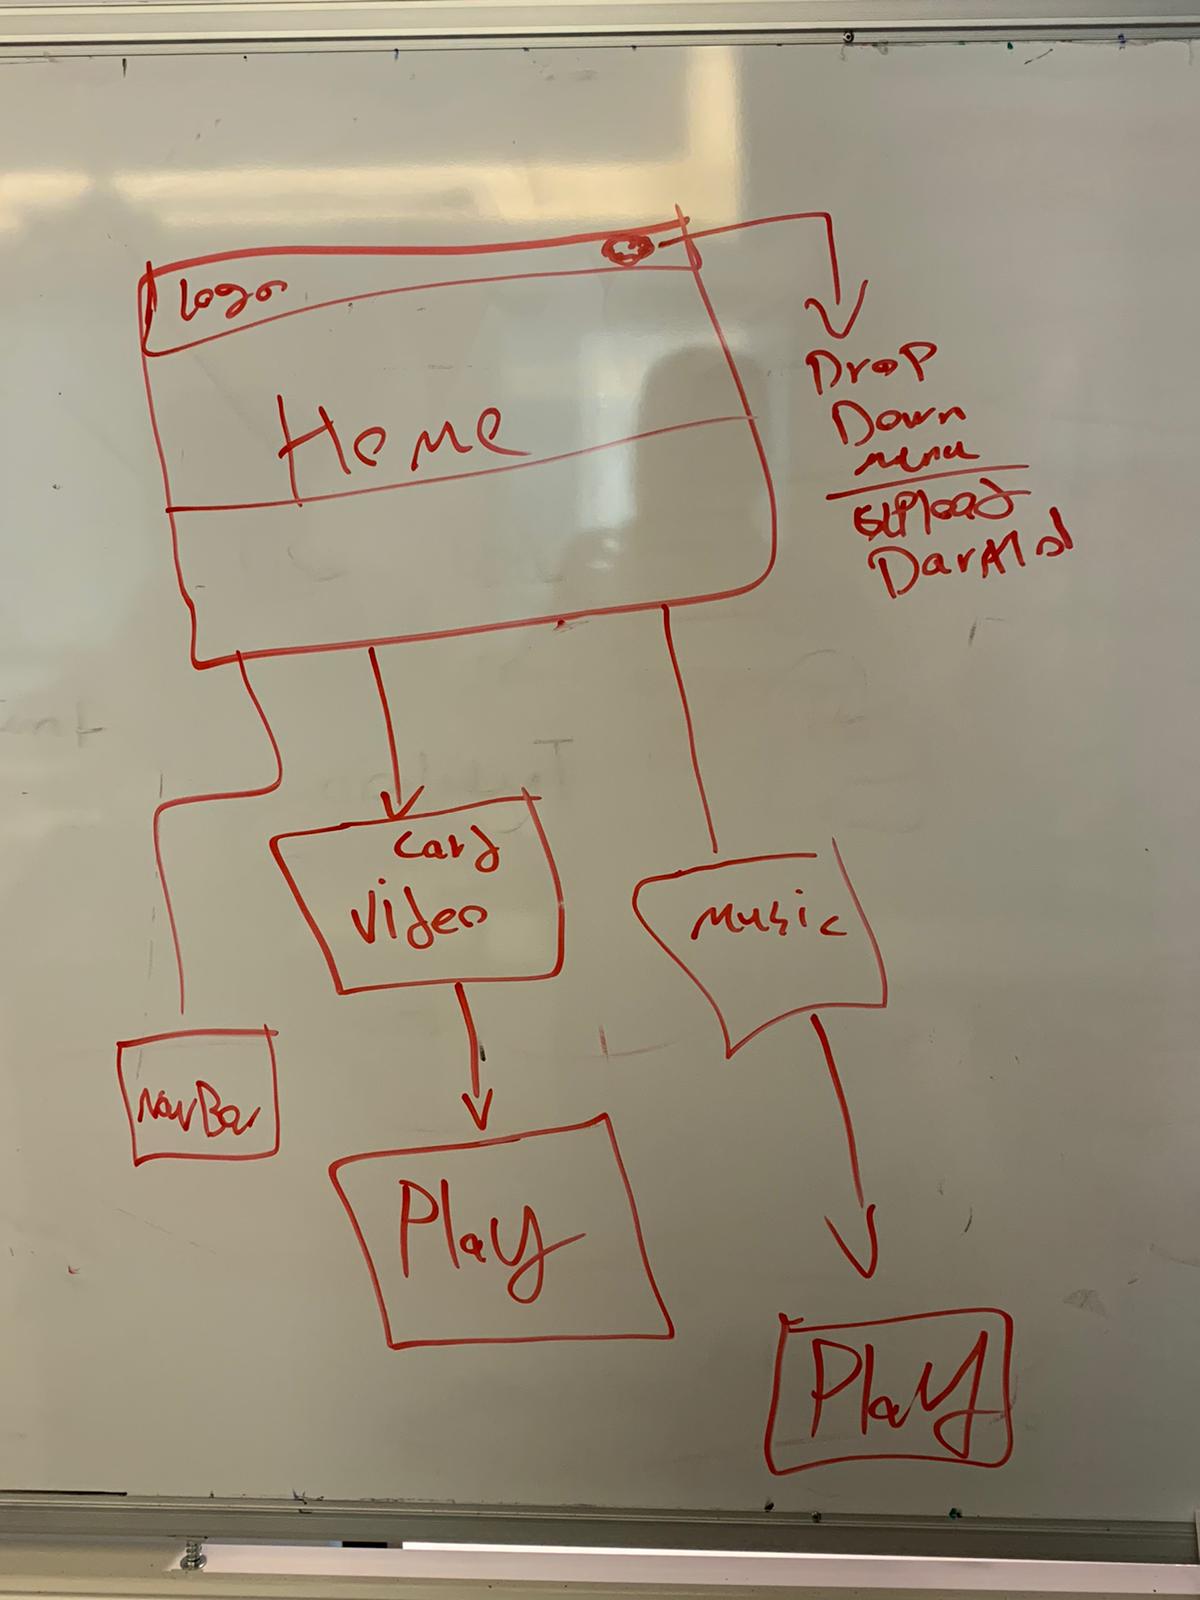 Logo
Home
Drop
Down
menu
Upload
Card
Video
music
NavBar
Play
Play